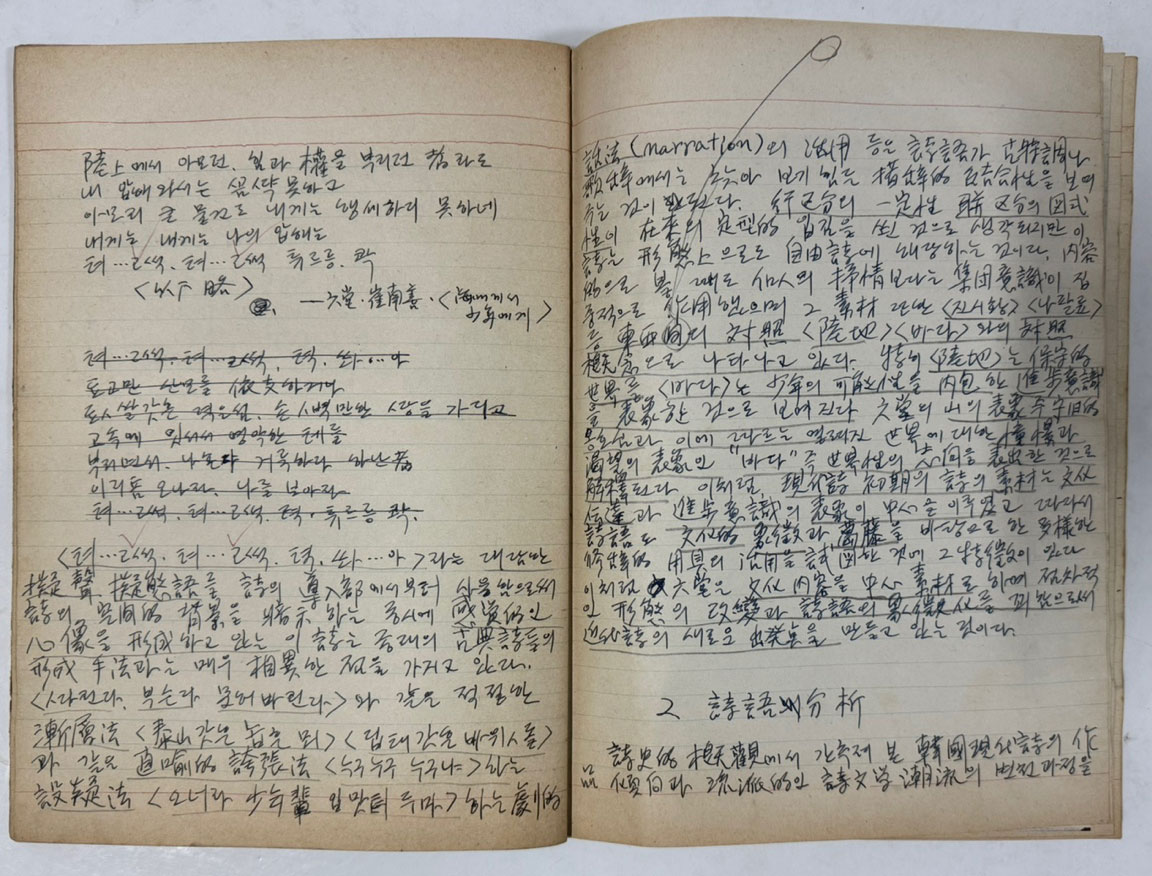 陸上에서 아모런. 힘과 權을 부리던 者라도
내 압헤와서는 꼼짝못하고
아모리 큰 물건도 내게는 행세하디 못하네
내게는 내게는 나의 압헤는
텨…ㄹ썩. 텨…ㄹ썩 튜르릉. 콱
〈以下略〉
―六堂·崔南善·〈海에게서 少年에게〉
텨…ㄹ썩. 텨…ㄹ썩. 텩. 쏴…아
됴고만 산모를 依支하거나
됴시쌀갓흔 뎍은섬. 손ㅅ벽만한 쌍을 가디고
고속에 잇서서 영악한 톄를
부리면서. 나혼댜 거룩하다 하난者
이리둄 오나라. 나를 보아라
텨…ㄹ썩. 텨…ㄹ썩. 텩. 튜르릉 콱.
〈텨…ㄹ썩. 텨…ㄹ썩. 텩. 쏴…아〉라는 대담한
擬聲. 擬態語를 詩의 導入部에서부터 사용함으로써
詩의 空間的 背景을 暗示하는 동시에 感覺的인
心像을 形成하고 있는 이 詩는 종래의 古典詩들의
形成 手法과는 매우 相異한 점을 가지고 있다.
〈싸린다. 부슨다 문허바린다〉와 같은 적절한
漸層法 〈泰山갓흔 놉흔 뫼〉〈딥태갓흔 바위ㅅ돌〉
과 같은 直喩的 誇張法 〈누구누구 누구냐〉하는
設疑法 〈오너라 少年輩 입맛텨 듀마〉하는 劇的
說法(narration)의 活用 등은 詩語가 古時調나
歌辭에서는 찾아 보기 힘든 構造的 結合性을 보여
주는 것이 된다. 行区分의 一定性 聯区分의 図式
性이 在来의 定型的 입김을 쐰 것으로 생각되지만 이
詩는 形態上으로도 自由詩에 해당하는 것이다. 内容
的으로 볼 때도 個人의 抒情보다는 集団意識이 집
중적으로 作用했으며 그 素材 또한 〈진시황〉〈나팔륜〉
등 東西国의 対照 〈陸地〉〈바다〉와의 対照
槪念으로 나타나고 있다. 特히 〈陸地〉는 保守的
世界를 〈바다〉는 少年의 可能性을 内包한 進步意識
을 表象한 것으로 보여진다 六堂의 山의 表象 즉 守旧的
봉건성과 이에 따르는 열려진 世界에 대한 憧憬과
渴望의 表象인 "바다" 즉 世界性의 志向을 表出한 것으로
解釋된다. 이처럼. 現代詩 初期의 詩의 素材는 文化
傳達과 進步意識의 表象이 中心을 이루었고 따라서
詩語도 文化的 象徵과 葛藤을 바탕으로 한 多様한
修辭的 用具의 活用을 試図한 것에 그 特徵이 있다
이처럼 六堂은 文化内容을 中心 素材로 하여 점차적
인 形態의 改變과 詩語의 象徵化를 꾀함으로써
近代詩의 새로운 出発点을 만들고 있는 것이다.
2 詩語의 分析
詩史的 槪觀에서 간추려 본 韓國現代詩의 作
品 傾向과 流派的인 詩文学 潮流의 변천과정을